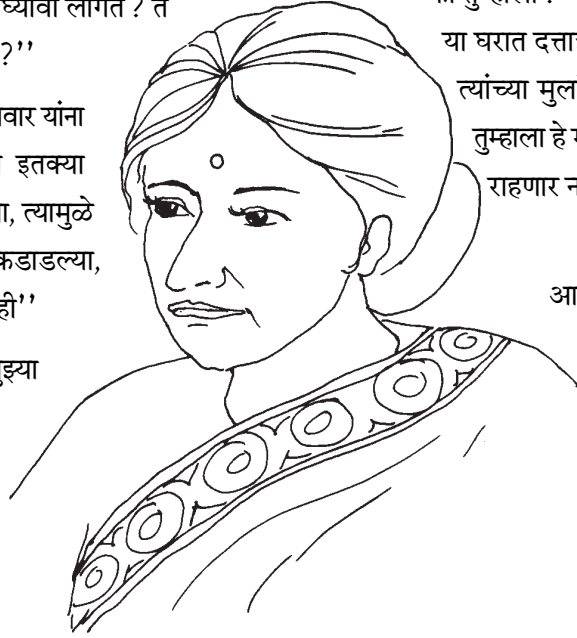 घ्यावा लागत ? त
?’’
वार यांना
इतक्या
ा, त्यामुळे
कडाडल्या,
ही’’
ुझ्या
या घरात दत्ता
त्यांच्या मुल
तुम्हाला हे
राहणार न
आ